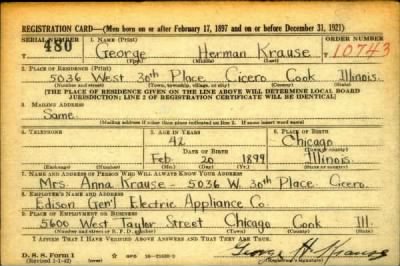 REGISTRATION CARD—(Men born on or after February 17, 1897 and on or before December 31, 1921)
SERIAL NUMBER 1. NAME (Print) ORDER NUMBER
480 George Herman Krause 10743
(First) (Middle) (Last)
2. PLACE OF RESIDENCE (Print)
5036 West 30th Place Cicero Cook Illinois.
(Number and street) (Town, township, village, or city) (County) (State)
[THE PLACE OF RESIDENCE GIVEN ON THE LINE ABOVE WILL DETERMINE LOCAL BOARD
JURISDICTION; LINE 2 OF REGISTRATION CERTIFICATE WILL BE IDENTICAL]
3. MAILING ADDRESS
Same.
[Mailing address if other than place indicated on line 2. If same insert word same]
4. TELEPHONE 5. AGE IN YEARS 6. PLACE OF BIRTH
42 Chicago
DATE OF BIRTH (Town or county)
Feb 20 1899 Illinois.
(Exchange) (Number) (Mo.) (Day) (Yr.) (State or country)
7. NAME AND ADDRESS OF PERSON WHO WILL ALWAYS KNOW YOUR ADDRESS
Mrs. Anna Krause - 5036 W. 30th Place Cicero.
8. EMPLOYER'S NAME AND ADDRESS
Edison Gen'l Electric Appliance Co.
9. PLACE OF EMPLOYMENT OR BUSINESS
5600 West Taylor Street Chicago Cook Ill.
(Number and street or R. F. D. number) (Town) (County) (State)
I AFFIRM THAT I HAVE VERIFIED ABOVE ANSWERS AND THAT THEY ARE TRUE.
D. S. S. Form 1 George H. Krause
(Revised 1-1-42) (Registrant's signature)